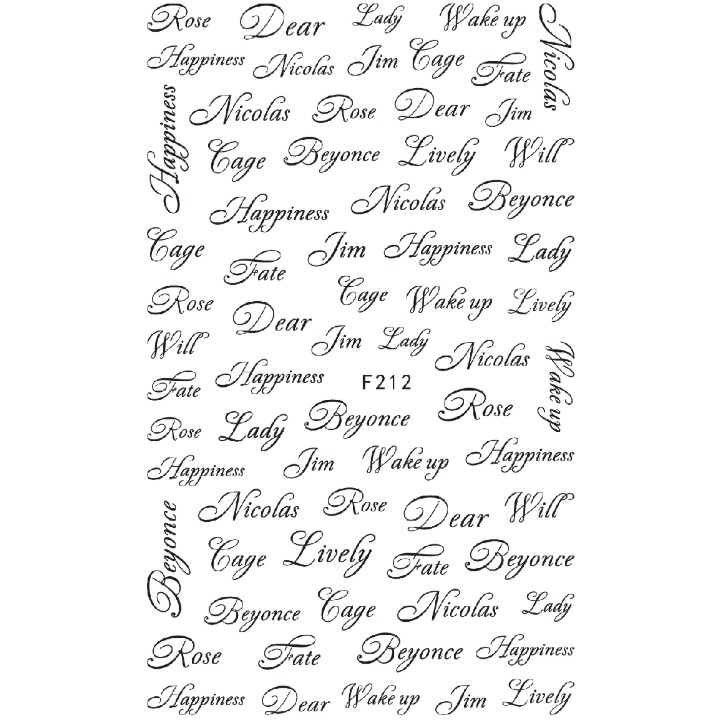 Rose Dear Lady Wake up Nicolas
Happiness Nicolas Jim Cage Fate
Happiness Nicolas Rose Dear Jim
Cage Beyonce Lively Will
Happiness Nicolas Beyonce
Cage Fate Jim Happiness Lady
Rose Dear Cage Wake up Lively
Will Jim Lady Nicolas Wake up
Fate Happiness F212 Rose
Rose Lady Beyonce
Happiness Jim Wake up Happiness
Beyonce Nicolas Rose Dear Will
Cage Lively Fate Beyonce
Beyonce Cage Nicolas Lady
Rose Fate Beyonce Happiness
Happiness Dear Wake up Jim Lively